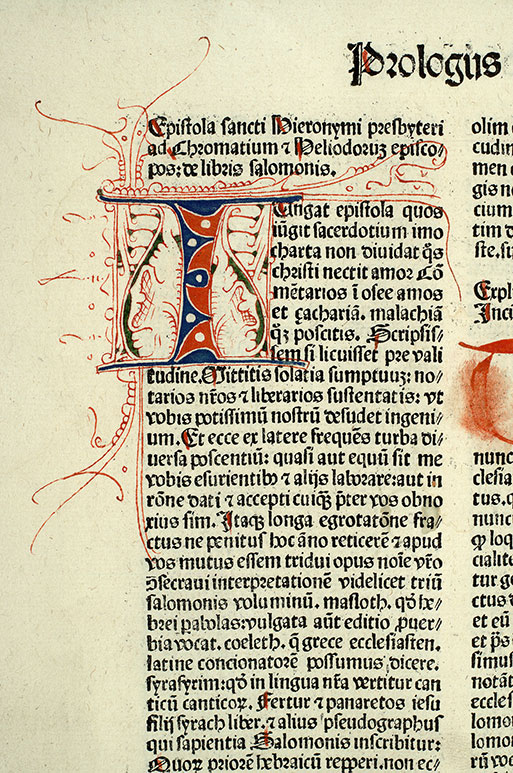 Prologus
Epistola sancti Hieronymi presbyteri
ad Chromatium ⁊ Heliodoruꝫ episco⸗
pos: de libris salomonis.
IUngat epistola quos
iũgit sacerdotium imo
charta non diuidat q̃s
christi nectit amor Cõ
mẽtarios ĩ osee amos
et ʒachariã. malachiã
qꝫ poscitis. Scripsis⸗
sem si licuisset pre vali
tudine. Mittitis solatia sumptuuꝫ: no⸗
tarios nr̃os ⁊ librarios sustentatis: vt
vobis potissimũ nostrũ desudet ingeni⸗
um. Et ecce ex latere frequẽs turba di⸗
uersa poscentiũ: quasi aut equũ sit me
vobis esurientibꝰ ⁊ alijs laborare: aut in
rõne dati ⁊ accepti cuiqꝫ p̃ter vos obno
xius sim. Itaqꝫ longa egrotatõne fra⸗
ctus ne penitus hoc ãno reticerẽ ⁊ apud
vos mutus essem tridui opus noĩe vr̃o
ꝯsecraui interpretationẽ videlicet triũ
salomonis voluminũ. masloth. qd̃ he⸗
brei ꝑabolas: vulgata aũt editio ꝓuer⸗
bia vocat. coeleth. q̃ grece ecclesiasten.
latine concionatorẽ possumus dicere.
syrasyrim: qd̃ in lingua nr̃a vertitur can
ticũ canticoꝝ. Fertur ⁊ panaretos iesu
filij syrach liber. ⁊ alius pseudographus
qui sapientia Salomonis inscribitur:
Quoꝝ priorẽ hebraicũ repperi. non ec⸗
olim
cudin
men
gis n
cium
tim
ste. su
Expl
Inci
nunc
clesia
tus. q
nunc
ꝙ loq
calite
tur g
ctus
et eũ
et p̃s
simus
notãt
eccles
lomo
lomo
rũ voc